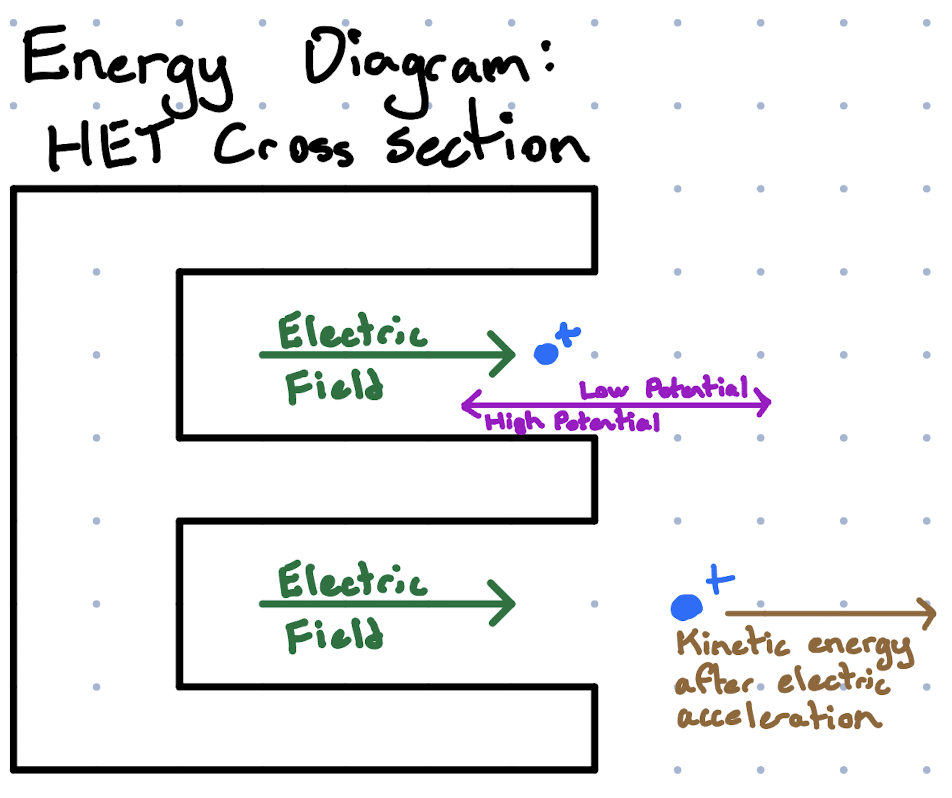 Energy Diagram:
HET Cross section
Electric
Field
+
Low Potential
High Potential
Electric
Field
+
Kinetic energy
after electric
acceleration